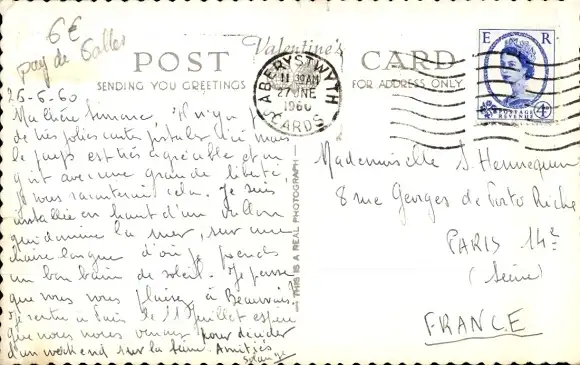 6€
pays de Galles
Valentine's
POST CARD
SENDING YOU GREETINGS
FOR ADDRESS ONLY
ABERYSTWYTH
11 30 AM
27 JNE
1960
CARDS
E R
4D
POSTAGE
REVENUE
THIS IS A REAL PHOTOGRAPH
26-6-60
Ma chère Simone, Il n'y a
de très jolies cartes postales ici mais
le pays est très agréable et on
y vit avec une grande liberté
Je vous raconterai cela. Je suis
installée en haut d'un vallon
qui domine la mer, sur une
chaise longue d'où je prends
un bon bain de soleil. Je pense
que vous vous plaisez à Beauvais?
Je rentre à Paris le 11 Juillet espère
que nous nous verrons pour décider
d'un weekend sur la Seine. Amitiés
Solange
Mademoiselle S. Hennequin
8 rue Georges de Porto Riche
PARIS 14e
(Seine)
FRANCE